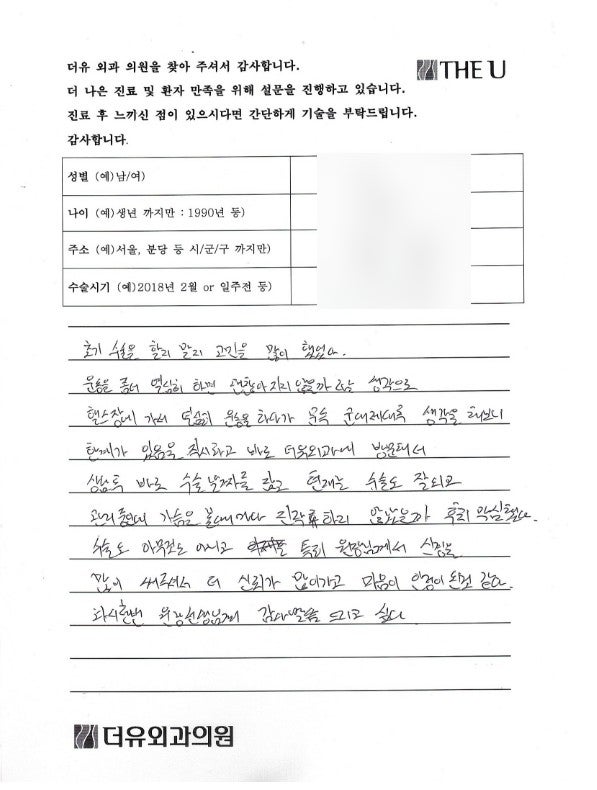 더유 외과 의원을 찾아 주셔서 감사합니다.
THE U
더 나은 진료 및 환자 만족을 위해 설문을 진행하고 있습니다.
진료 후 느끼신 점이 있으시다면 간단하게 기술을 부탁드립니다.
감사합니다.
성별 (예)남/여)
나이 (예)생년 까지만 : 1990년 등)
주소 (예)서울, 분당 등 시/군/구 까지만)
수술시기 (예)2018년 2월 or 일주전 등)
초기 수술을 할지 말지 고민을 많이 했었다.
운동을 좀더 열심히 하면 괜찮아지지 않을까 하는 생각으로
헬스장에 가서 열심히 운동을 하다가 생각을 해보니
한계가 있음을 직시하고 바로 더유외과에 방문해서
상담후 바로 수술날짜를 잡고 현재는 수술도 잘되고
가슴을 볼때마다 진작 하지 않았을까
수술도 아무것도 아니고 특히 원장님께서 신경을
많이 써주셔서 더 신뢰가 많이가고 마음이 안정이 된것 같다.
다시한번 감사말씀 드리고 싶다.
더유외과의원